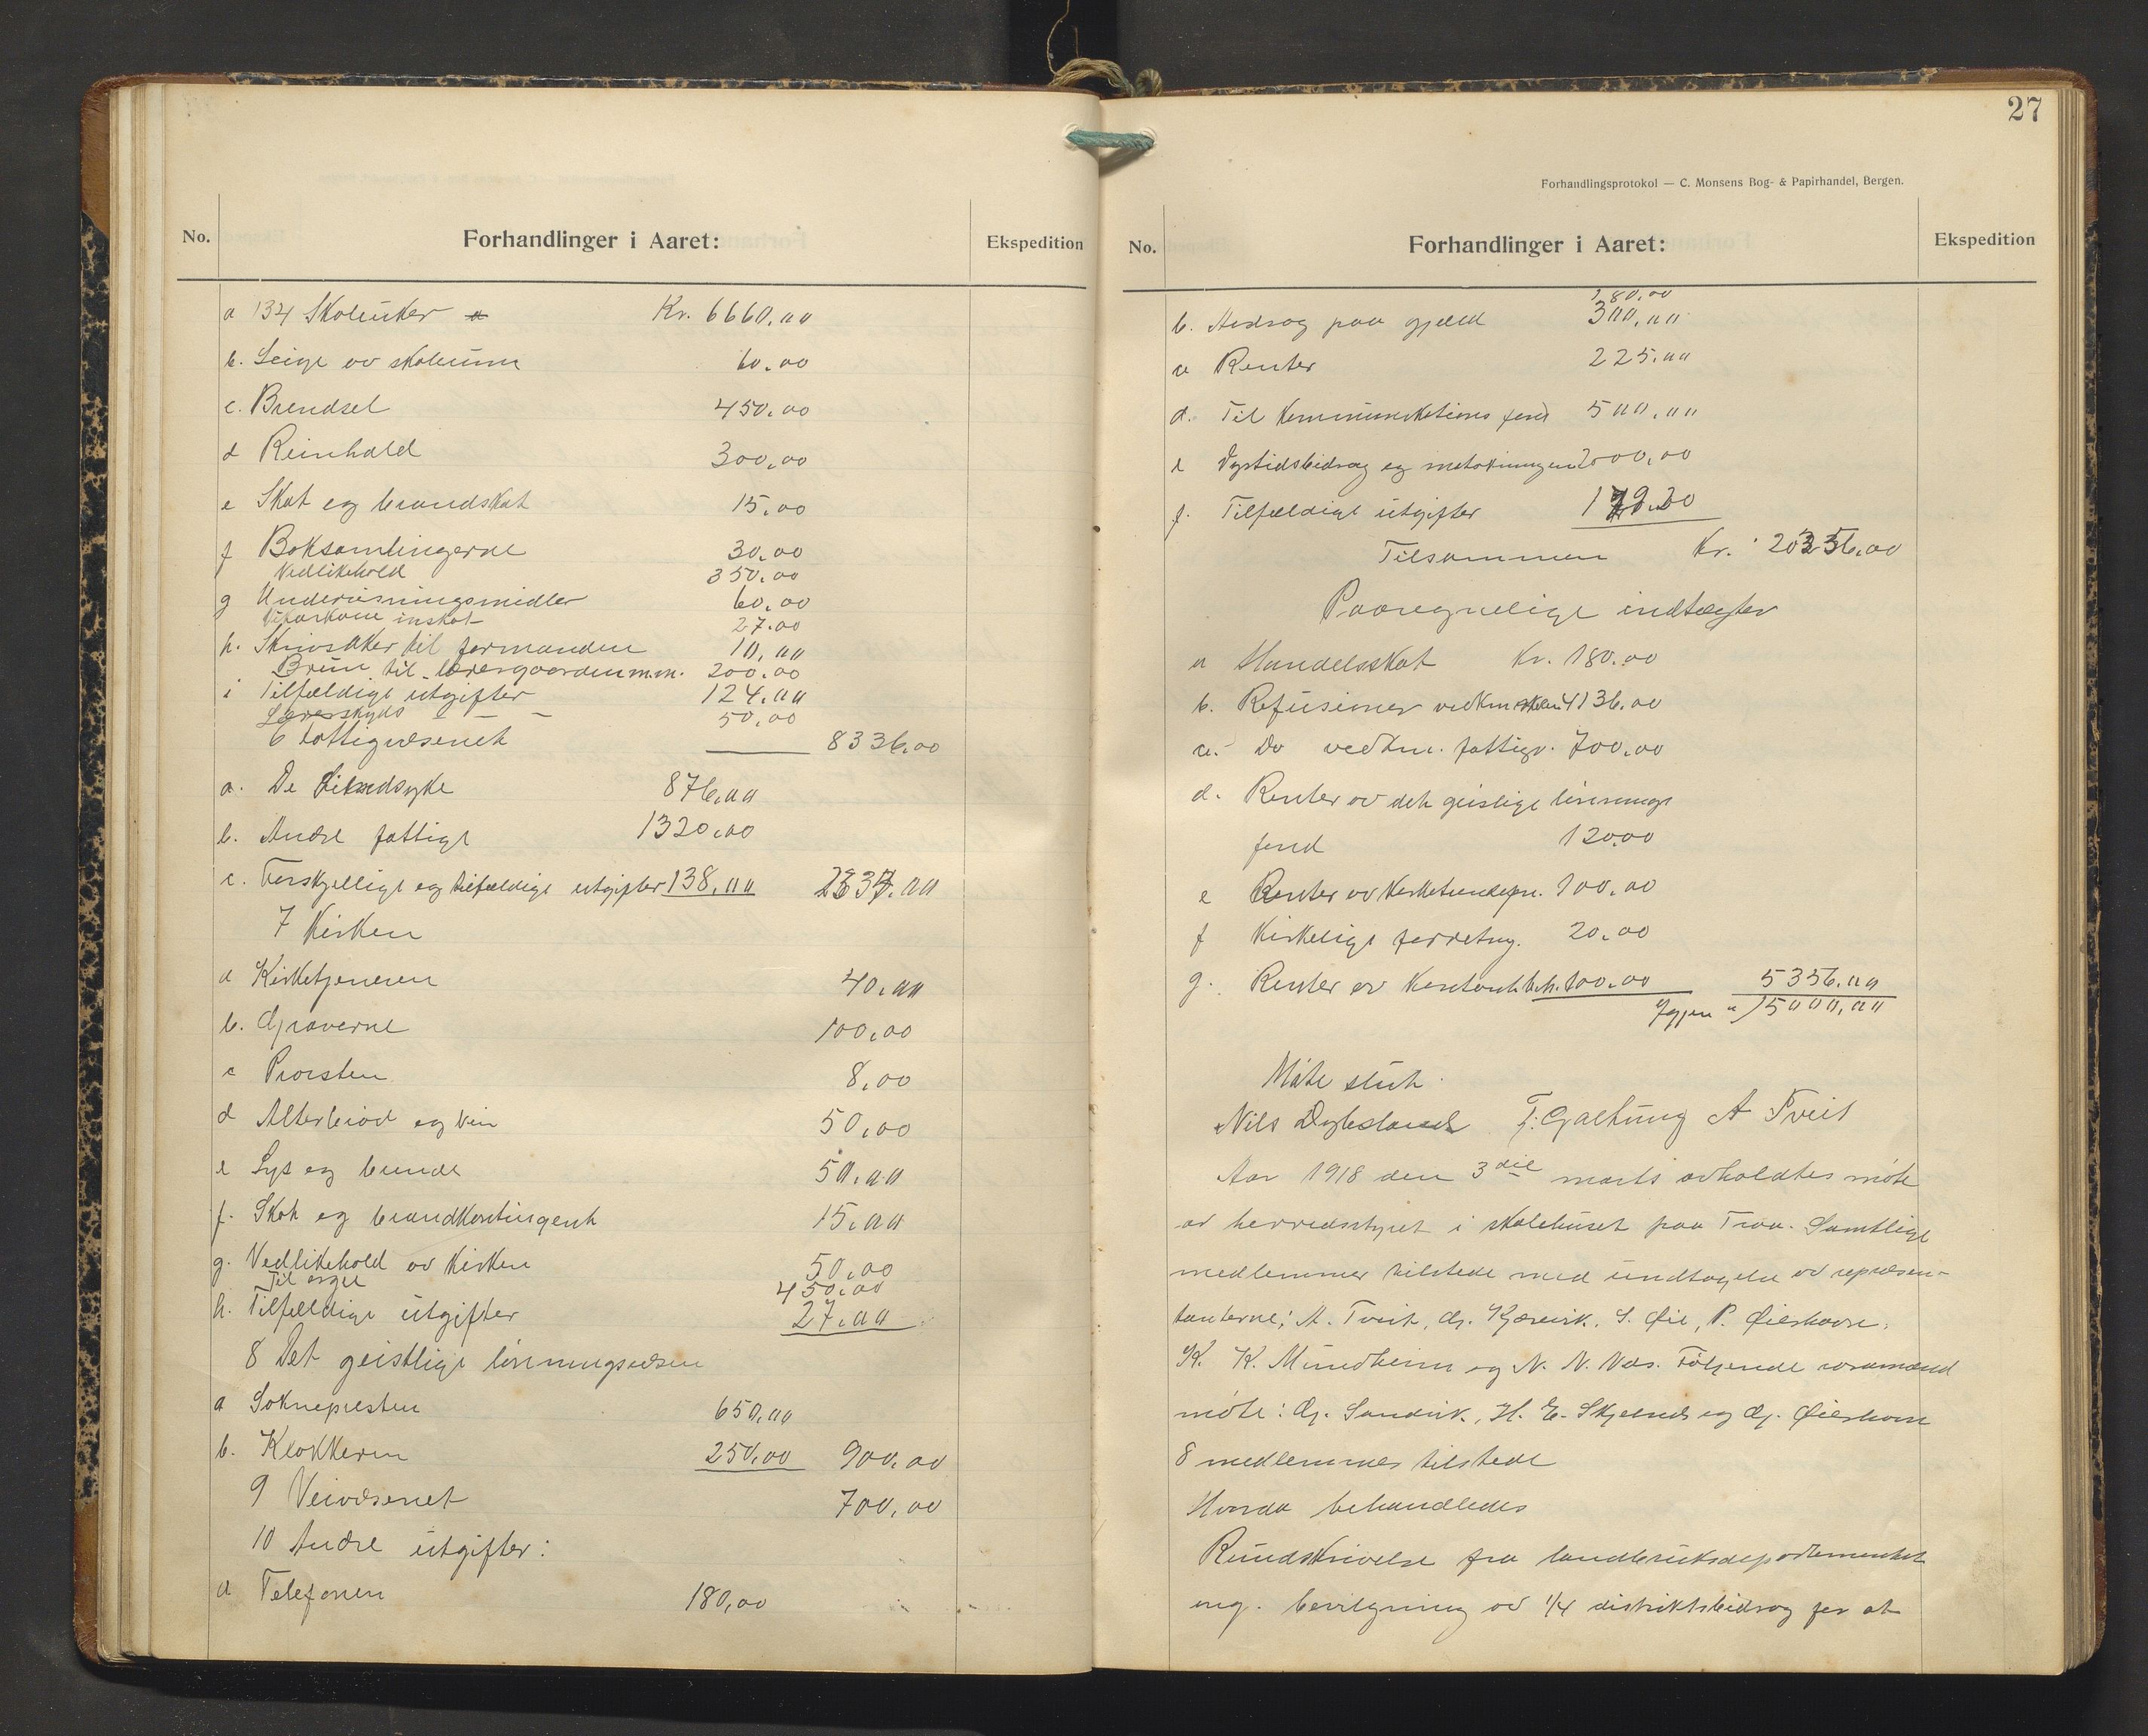 No.
Forhandlinger i Aaret:
Ekspedition
a 134 Skoleuker Kr. 6660,00
b. Leige av skolerum 60,00
c. Brendsel 450,00
d Reinhold 300,00
e Skat og brandskat 15,00
f Boksamlingerne 30,00
Vedlikehold 350,00
g Undervisningsmidler 60,00
27,00
h. Skrivsaker til formanden 10,00
Brun til lærergaarden m.m. 200,00
i Tilfældige utgifter 124,00
Lærerskyds 50,00
6 Fattigvæsenet 8336,00
a. De sindsyke 876,00
b. Andre fattige 1320,00
c. Forskjellige og tilfældige utgifter 138,00
7 Kirken
a Kirketjeneren 40,00
b. Graverne 100,00
c Provsten 8,00
d Alterbrød og vin 50,00
e Lys og 50,00
f. Skat og brandkontingent 15,00
g. Vedlikehold av kirken 50,00
Til orgel 450,00
h. Tilfældige utgifter 27,00
8 Det geistlige lønningsvæsen
a Soknepresten 650,00
b. Klokkeren 250,00 900,00
9 Veivæsenet 700,00
10 Andre utgifter:
a Telefonen 180,00
27
Forhandlingsprotokol — C. Monsens Bog- & Papirhandel, Bergen.
No.
Forhandlinger i Aaret:
Ekspedition
180,00
b. Avdrag paa gjæld 300,00
c Renter 225,00
d. Til kommunikations fond 500,00
e Dyrtidsbidrag og 2000,00
f. Tilfældige utgifter
Tilsammen Kr.
Paaregnelige indtægter
a Handelsskat Kr. 180,00
b. Refusioner vedkm skolen 4136,00
c. Do vedkm. fattigv. 700,00
d. Renter av det geislige lønnings
fond 120,00
e Renter av 100,00
f Kirkelige forretng. 20,00
g. Renter av kontantbeh. 100,00 5356,00
Igjen a 15000,00
Møte slut.
Nils Dybsland T. Galtung A Tveit
Aar 1918 den 3die marts avholdtes møte
av herredsstyret i skolehuset paa Traa. Samtlige
medlemmer tilstede med undtagelse av repræsen-
tanterne: A. Tveit, G. Kjærvik, S. Øie, P. Øieshovre,
K. K. Mundheim og N. N. Nes. Følgende varamænd
møtte: G. Sandvik, H. E. Skjelnes og G. Øieshovre
8 medlemmer tilstede
Hvorda behandledes
Rundskrivelse fra landbruksdepartementet
ang. bevilgning av 1/4 distriktsbidrag for at